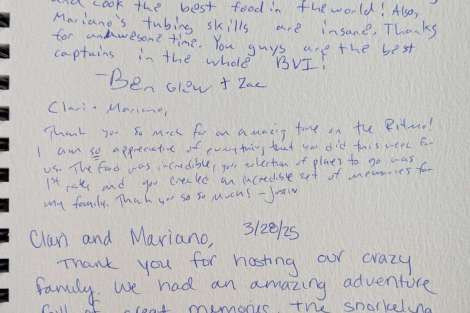 and cook the best food in the world! Also,
Mariano's tubing skills are insane. Thanks
for an awesome time. You guys are the best
captains in the whole BVI!
-Ben Glew + Zac
Clari + Mariano,
Thank you so much for an amazing time on the Ritmo!
I am so appreciative of everything that you did this week for
us. The food was incredible, your selection of places to go was
1st rate, and you created an incredible set of memories for
my family. Thank you so so much! - Justin
Clari and Mariano, 3/28/25
Thank you for hosting our crazy
family. We had an amazing adventure
full of great memories. The snorkeling